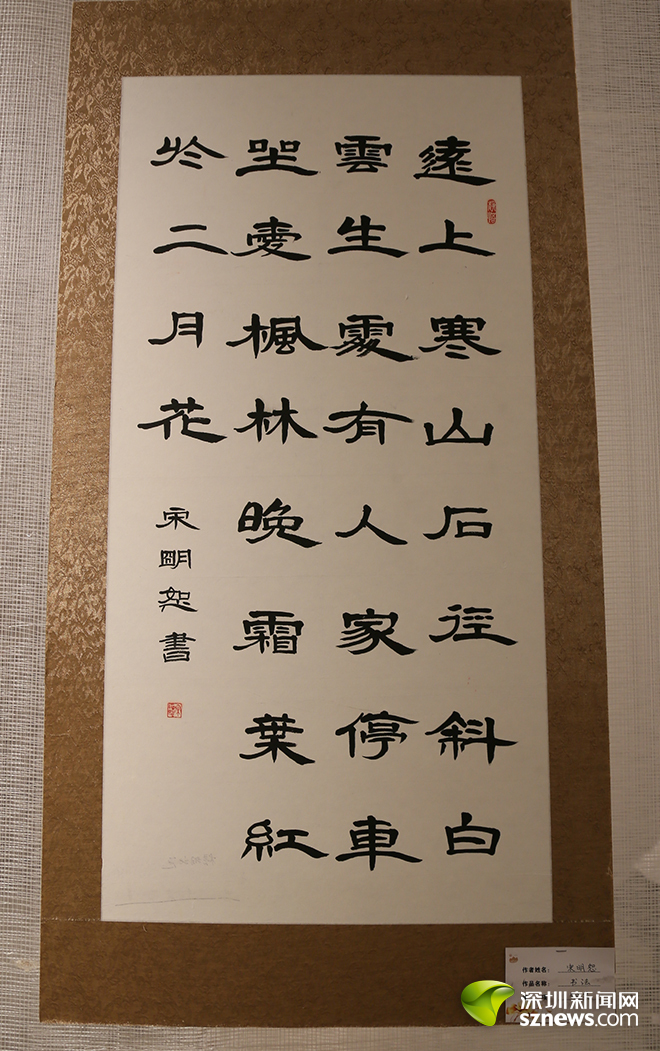 遠上寒山石径斜白
雲生處有人家停車
坐愛楓林晚霜葉紅
於二月花
宋明恕書
作者姓名：宋明恕
作品名称：书法
深圳新闻网
sznews.com